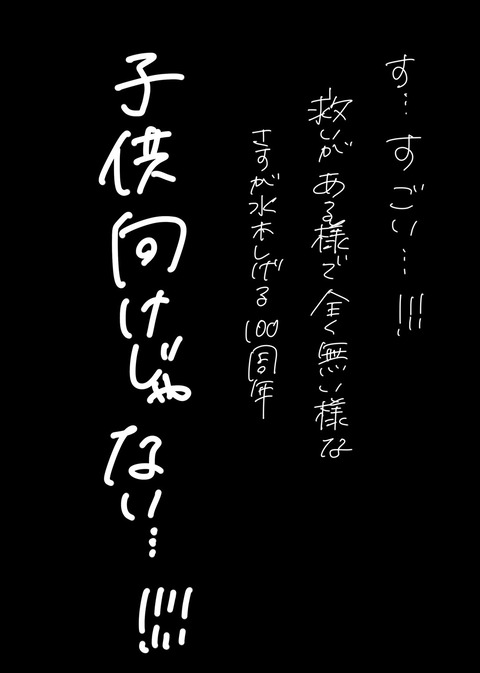 す…すごい…!!!
救いがある様で全く無い様な
さすが水木しげる100周年
子供向けじゃない…!!!!!